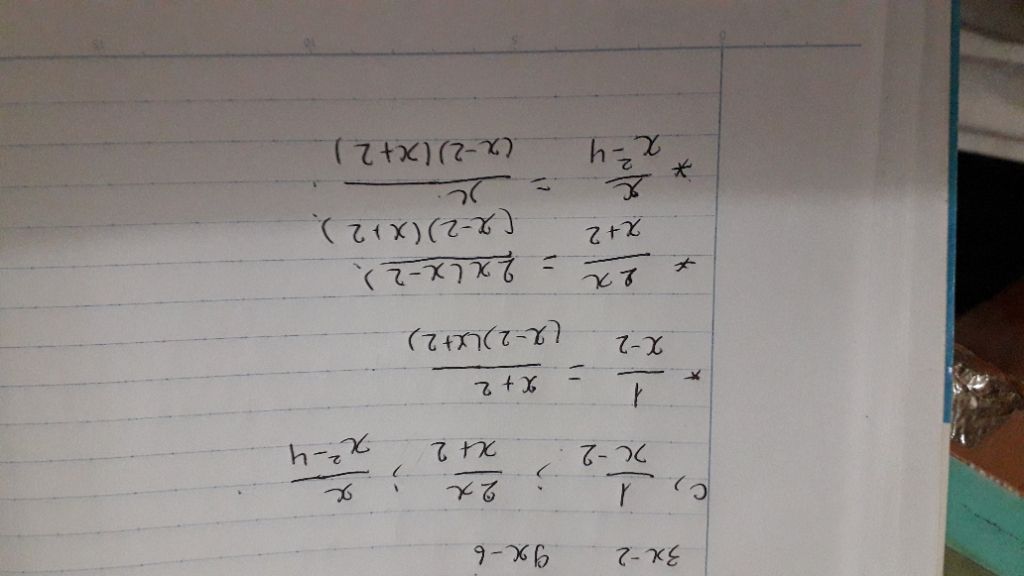 3x-2 9x-6
c, 1/(x-2) ; 2x/(x+2) ; x/(x²-4)
* 1/(x-2) = (x+2)/((x-2)(x+2))
* 2x/(x+2) = 2x(x-2)/((x-2)(x+2))
* x/(x²-4) = x/((x-2)(x+2))